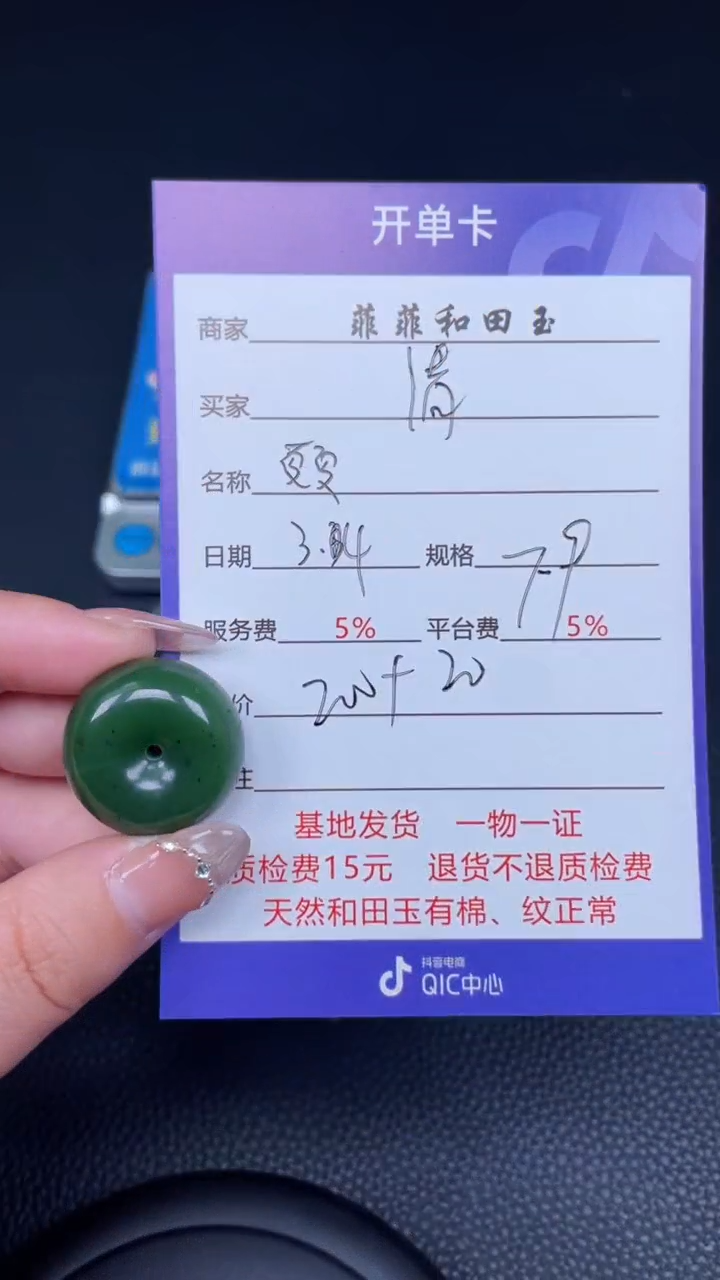 开单卡
商家 菲菲和田玉
买家
名称
日期 3. 4 规格 7-9
服务费 5% 平台费 5%
价 200+20
注
基地发货 一物一证
质检费15元 退货不退质检费
天然和田玉有棉、纹正常
抖音电商
QIC中心